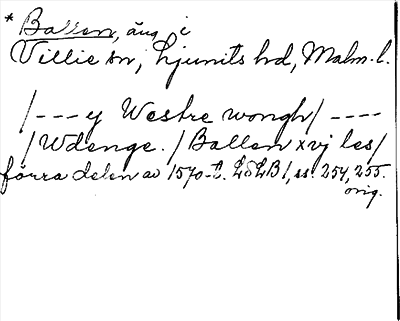 * Ballen, äng i
Villie sn, Ljunits hd, Malm. l.
/--- y Westre wongh/ ----
/Wdenge. / Ballen xvj les/
förra delen av 1570-t. LSLB 1, ss. 254, 255.
orig.